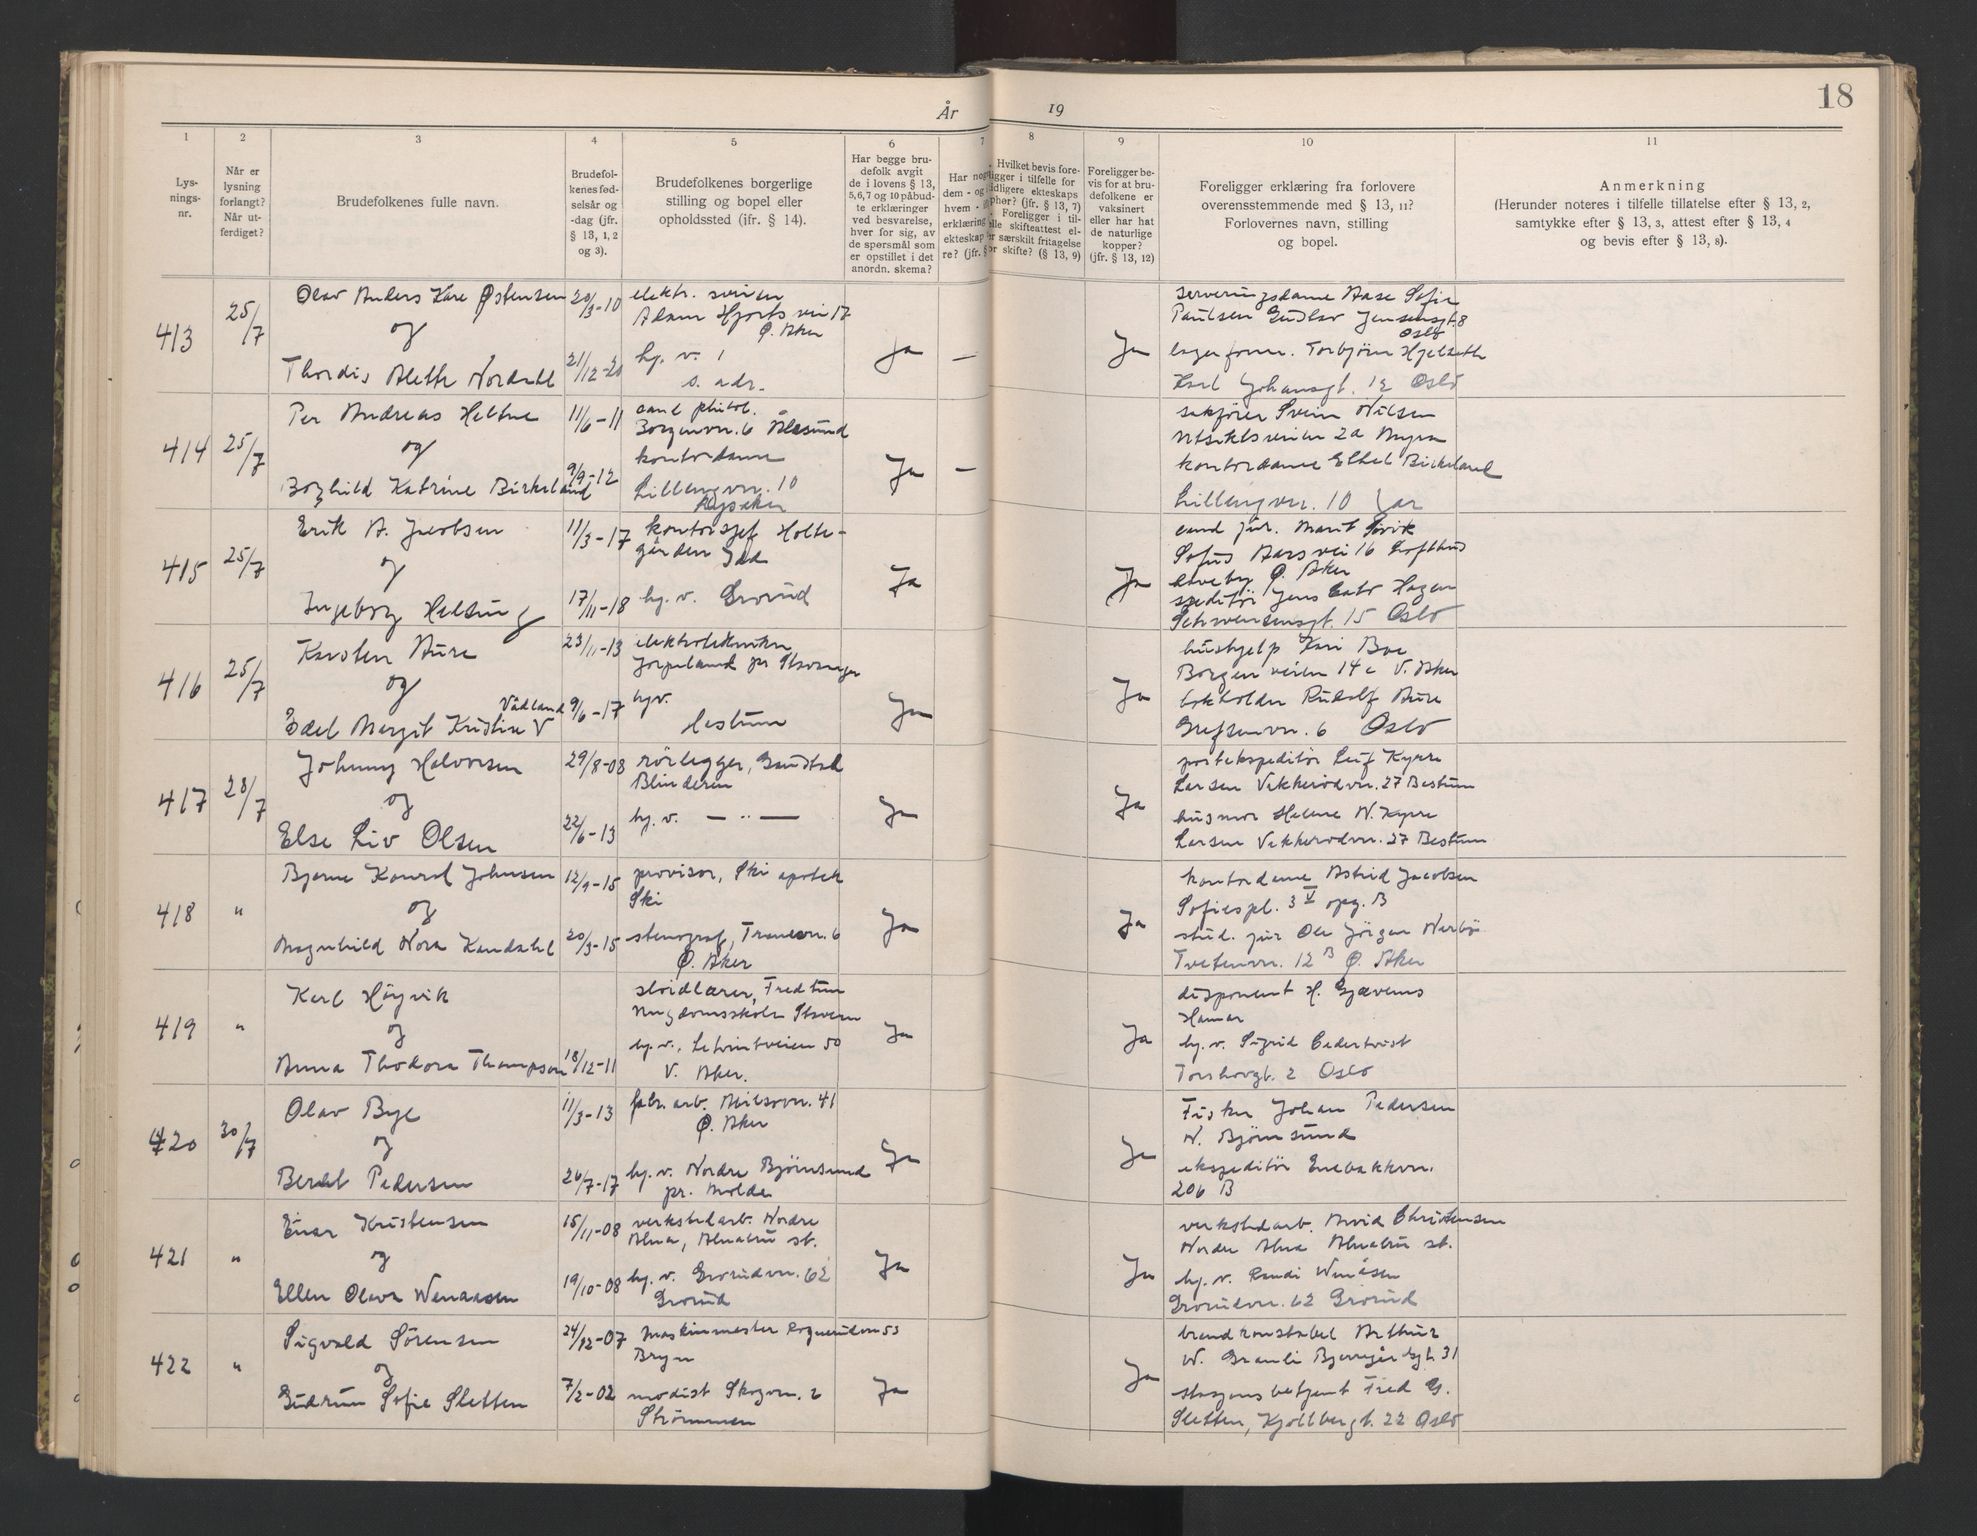 År 19
18
1
2
3
4
5
6
7
8
9
10
11
Lys-
nings-
nr.
Når er
lysning
forlangt?
Når ut-
ferdiget?
Brudefolkenes fulle navn.
Brudefol-
kenes fød-
selsår og
-dag (jfr.
§ 13, 1, 2
og 3).
Brudefolkenes borgerlige
stilling og bopel eller
opholdssted (jfr. § 14).
Har begge bru-
defolk avgit
de i lovens § 13,
5, 6, 7 og 10 påbud-
te erklæringer
ved besvarelse,
hver for sig, av
de spørsmål som
er opstillet i det
anordn. skema?
Har nogen
dem - og i
hvem -
erklæring
ekteskap
re? (jfr. §
Hvilket bevis fore-
ligger i tilfelle for
tidligere ekteskaps
ophør? (jfr. § 13, 7)
- Foreligger i til-
felle skifteattest el-
er særskilt fritagelse
for skifte? (§ 13, 9)
Foreligger be-
vis for at bru-
defolkene er
vaksinert
eller har hat
de naturlige
kopper?
(jfr. § 13, 12)
Foreligger erklæring fra forlovere
overensstemmende med § 13, 11?
Forlovernes navn, stilling
og bopel.
Anmerkning
(Herunder noteres i tilfelle tillatelse efter § 13, 2,
samtykke efter § 13, 3, attest efter § 13, 4
og bevis efter § 13, 8).
413 25/7
Olav Anders Kåre Østensen 20/3-10 elektr. sveiser
Adam Hjorts vei 17
Ø. Aker
og
Thordis Alette Nordahl 21/12-20 hj. v. s. adr.
Ja —
Ja
serveringsdame Aase Sofie
Paulsen Gudlav Jensensgt. 8
Oslo
lagerform. Torbjørn Hjelseth
Karl Johansgt. 12 Oslo
414 25/7
Per Andreas Heltne 11/6-11 cand philol.
Borgenvn. 6 Ålesund
og
Borghild Katrine Birkeland 9/9-12 kontordame
Lillengvn. 10
Lysaker
Ja —
sakfører Svein Nilsen
Utsiktsveien 2a
kontordame Ethel Birkeland
Lillengvn. 10
415 25/7
Erik A. Jacobsen 11/3-17 kontorsjef Holte-
gården
og
Ingeborg Helsing 17/11-18 hj. v. Grorud
Ja
Ja
cand jur. Marit
Sofus Aars vei 16
Ø. Aker
speditør Jens Hagen
Schwensensgt. 15 Oslo
416 25/7
Karsten Aure 23/11-13 elektrotekniker
Jørpeland pr Stavanger
og
Vådland
Edel Margit Kristine V 9/6-17 hj. v.
Bestum
Ja
Ja
hushjelp Kari Boe
Borgenveien 14c V. Aker
bokholder Rudolf Aure
Grefsenvn. 6 Oslo
417 28/7
Johnny Halvorsen 29/8-08 rørlegger, Gaustad
Blindern
og
Else Liv Olsen 22/6-13 hj. v. — „ —
Ja
Ja
postekspeditør Leif Kyrre
Larsen Vækkerødvn. 27 Bestum
husmor Helene N. Kyrre
Larsen Vækkerødvn. 27 Bestum
418 "
Bjarne Konrad Johnsen 12/9-15 provisor, Ski apotek
Ski
og
Magnhild Nora Kandahl 20/3-15 stenograf, Tranevn. 6
Ø. Aker
Ja
Ja
kontordame Astrid Jacobsen
Sofiespl. 3 V opg. B
stud. jur Ole Jørgen Nerbø
Tvetenvn. 12 B Ø. Aker
419 "
Karl Høyvik sløidlærer, Fredtun
ungdomsskole Stavern
og
Anna Thodora Thampson 18/12-11 hj. v., 50
V. Aker.
Ja
Ja
disponent H. Gjævenes
Hamar
hj. v. Sigrid Cedertvist
Torshovgt. 2 Oslo
420 30/7
Olav Bye 11/3-13 fabr. arb. 41
Ø. Aker
og
Berdt Pedersen 26/7-17 hj. v. Nordre Bjørnsund
pr. Molde
Ja
Ja
Fisker Johan Pedersen
N. Bjørnsund
ekspeditør Enebakkvn.
206 B
421 "
Einar Kristensen 15/11-08 verkstedarb. Nordre
Alna, Alnabru st.
og
Ellen Olava Wenaasen 19/10-08 hj. v. Grorudvn. 62
Grorud
Ja
Ja
verkstedarb. Arvid Christensen
Nordre Alna Alnabru st.
hj. v. Randi Wenåsen
Grorudvn. 62 Grorud
422 "
Sigvald Sørensen 24/12-07 maskinmester Rognerudvn 53
Bryn
og
Gudrun Sofie Sletten 7/2-02 modist Skogvn. 2
Strømmen
Ja
Ja
brandkonstabel Arthur
W. Granli Bjerregårdsgt. 31
stasjonsbetjent Fred G.
Sletten, Kjølberggt. 22 Oslo